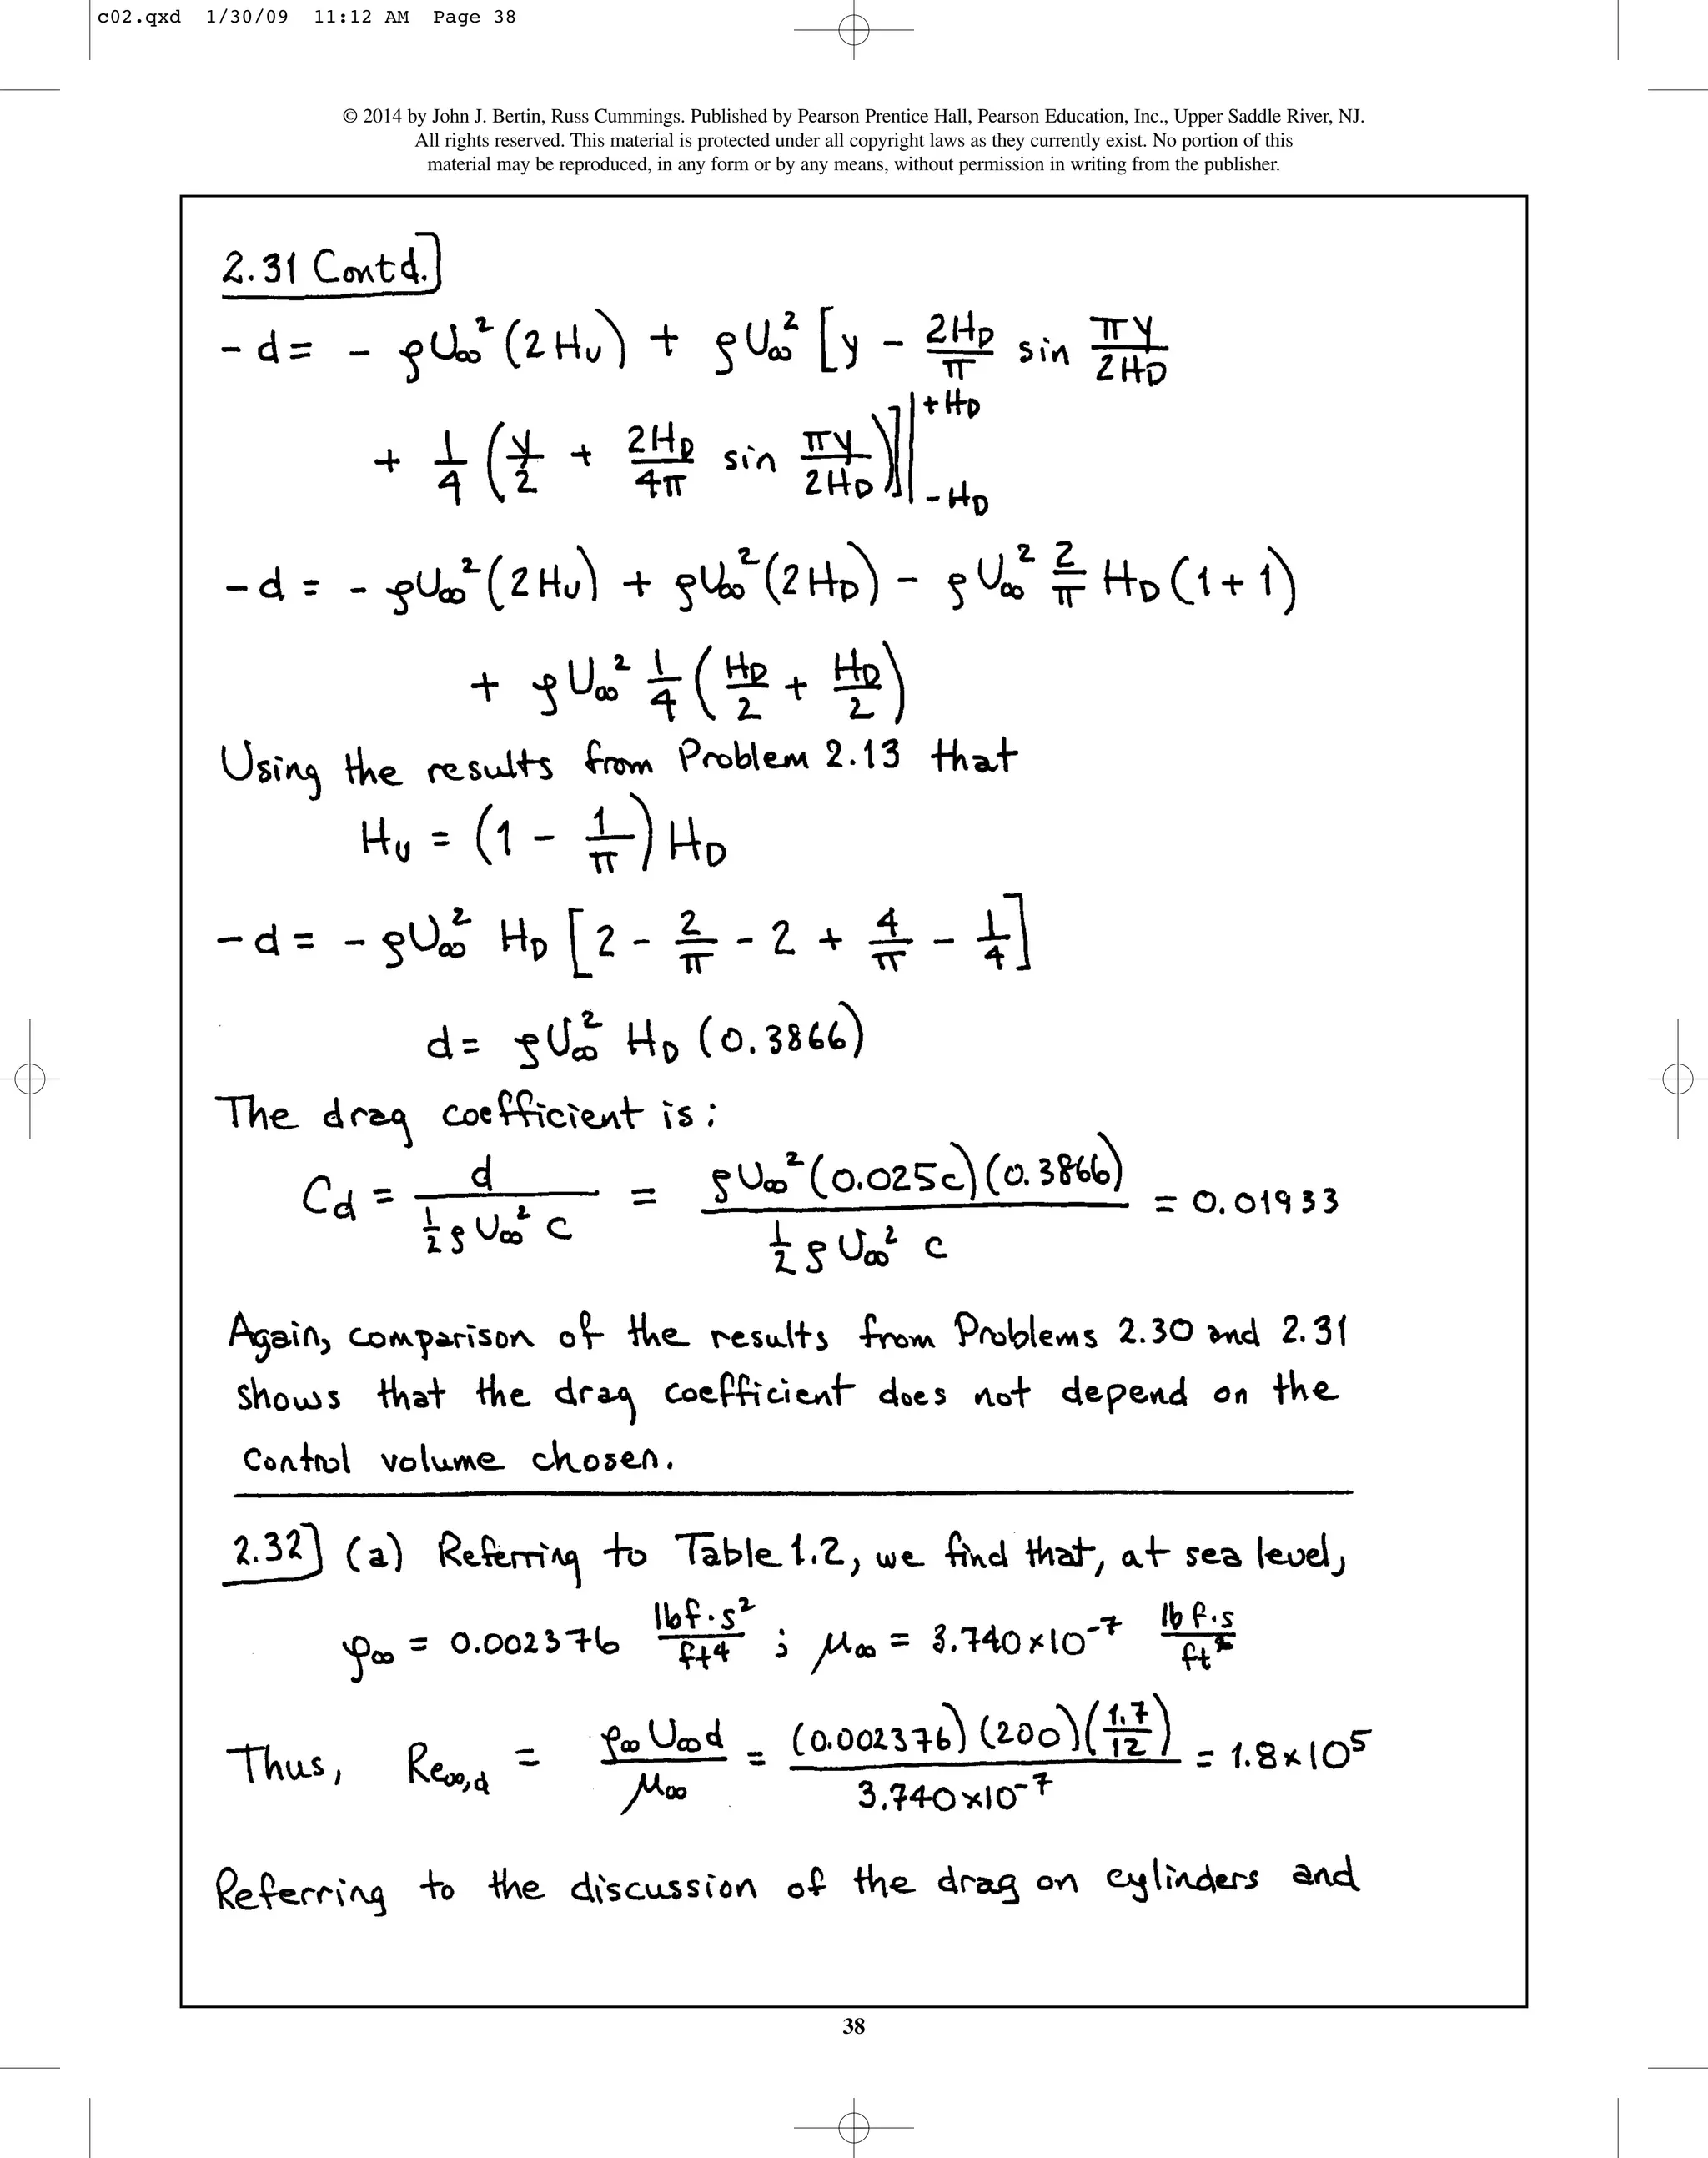 c02.qxd 1/30/09 11:12 AM Page 38
© 2014 by John J. Bertin, Russ Cummings. Published by Pearson Prentice Hall, Pearson Education, Inc., Upper Saddle River, NJ.
All rights reserved. This material is protected under all copyright laws as they currently exist. No portion of this
material may be reproduced, in any form or by any means, without permission in writing from the publisher.
2.31 Contd.]
-d = - ρU∞² (2H_U) + ρU∞² [y - 2H_D/π sin πy/2H_D
+ 1/4 (y/2 + 2H_D/4π sin πy/2H_D)]|+H_D -H_D
-d = - ρU∞² (2H_U) + ρU∞² (2H_D) - ρU∞² 2/π H_D (1+1)
+ ρU∞² 1/4 (H_D/2 + H_D/2)
Using the results from Problem 2.13 that
H_U = (1 - 1/π) H_D
-d = - ρU∞² H_D [2 - 2/π - 2 + 4/π - 1/4]
d = ρU∞² H_D (0.3866)
The drag coefficient is:
C_d = d / (1/2 ρU∞² c) = ρU∞² (0.025c)(0.3866) / (1/2 ρU∞² c) = 0.01933
Again, comparison of the results from Problems 2.30 and 2.31
shows that the drag coefficient does not depend on the
control volume chosen.
2.32] (a) Referring to Table 1.2, we find that, at sea level,
ρ∞ = 0.002376 lbf·s²/ft⁴ ; μ∞ = 3.740×10⁻⁷ lbf·s/ft²
Thus, Re∞,d = ρ∞U∞d/μ∞ = (0.002376)(200)(1.7/12) / 3.740×10⁻⁷ = 1.8×10⁵
Referring to the discussion of the drag on cylinders and
38